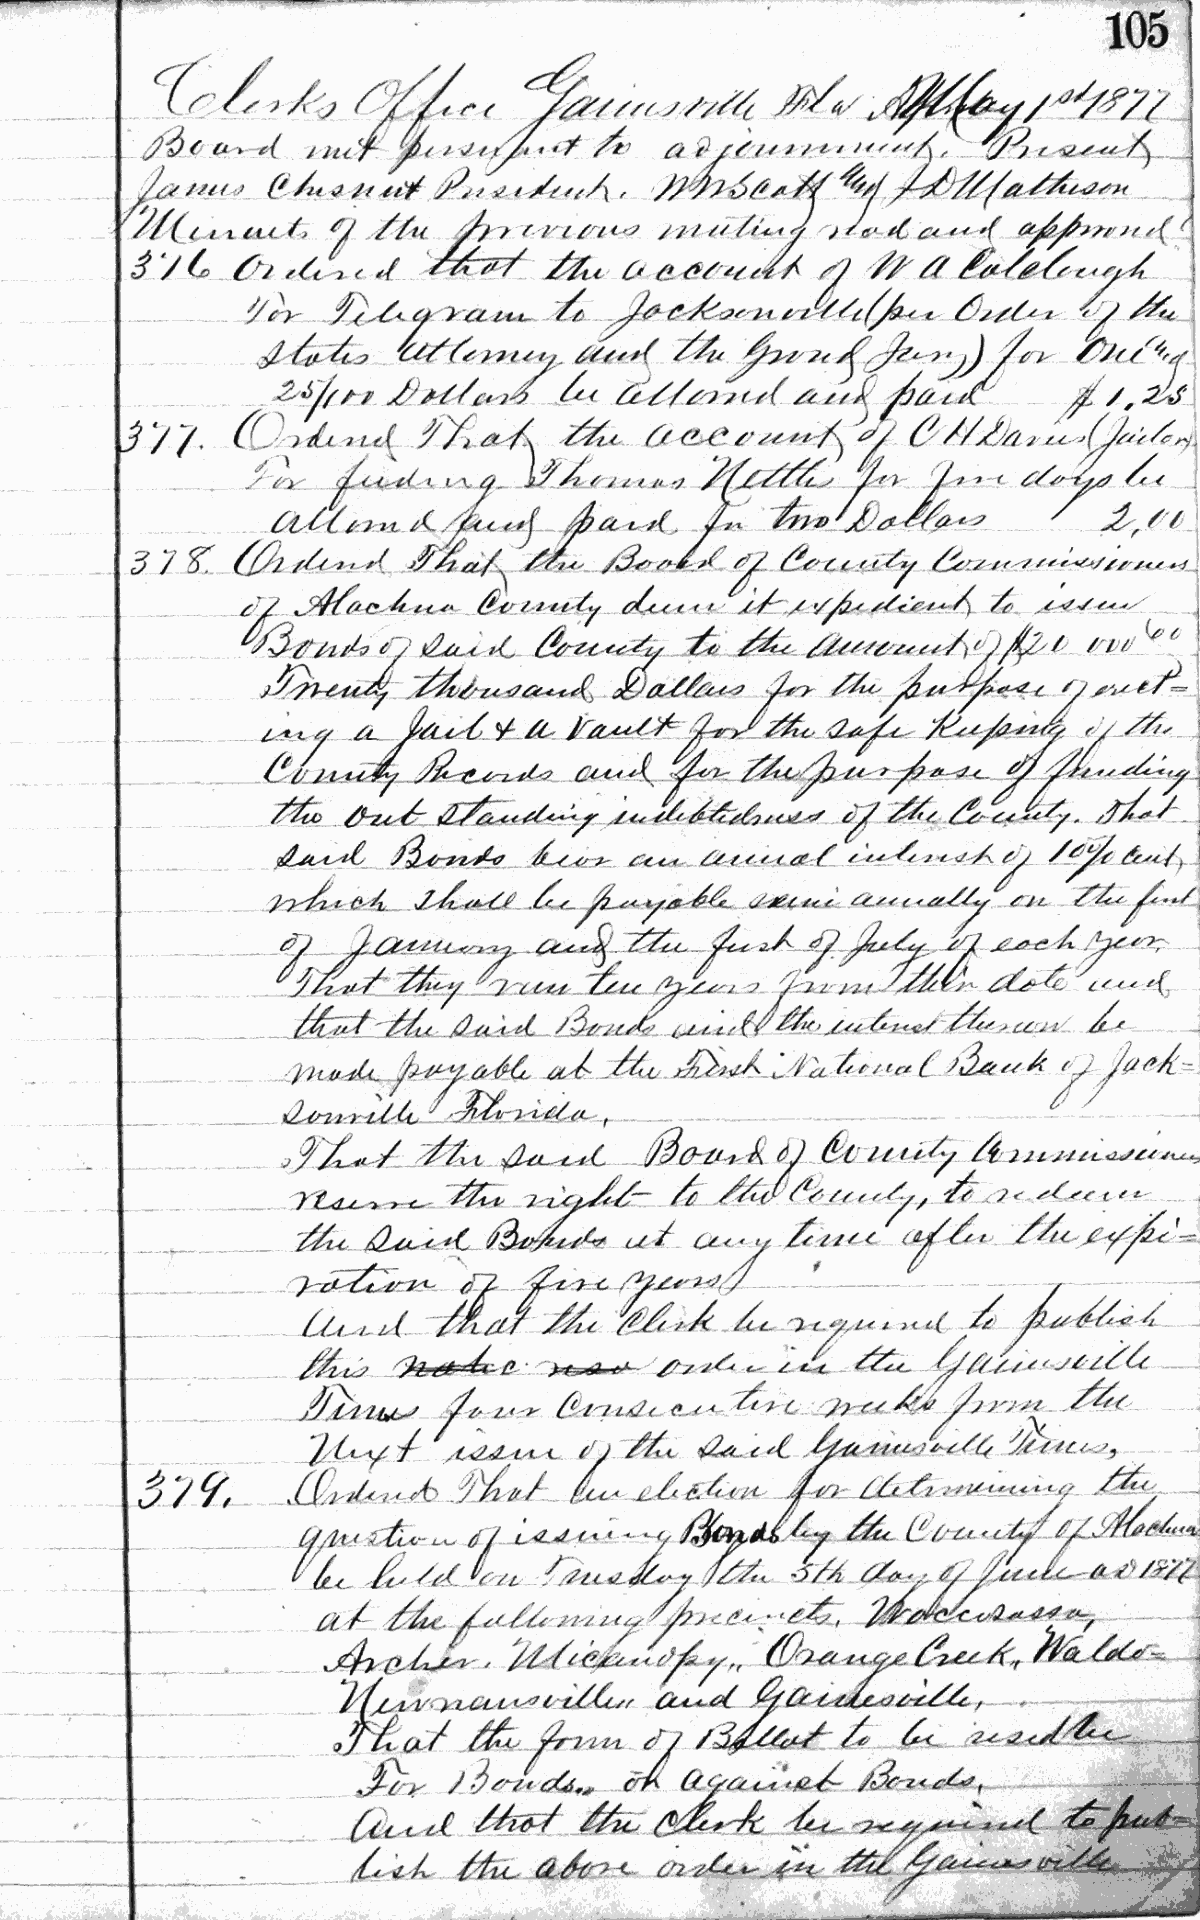 105
Clerks Office Gainesville Fla May 1st 1877
Board met persuant to adjournment. Present
James Chesnut President. W W Scott and J D Matheson
Minuets of the previous meeting read and approved
376 Ordered that the account of W A Colclough
For Telegram to Jacksonville (per Order of the
States Attorney and the Grand Jury) for One and
25/100 Dollars be allowed and paid $1.25
377. Ordered That the account of C H Davis (Jailor)
For feeding Thomas Nettles for five days be
allowed and paid for two Dollars 2,00
378. Ordered That the Board of County Commissioners
of Alachua County deem it expedient to issue
Bonds of said County to the amount of $20 000 00
Twenty thousand Dollars for the purpose of erect=
ing a Jail & a Vault for the safe Keeping of the
County Records and for the purpose of funding
the out standing indebtedness of the County. That
said Bonds bear an anual interest of 10 % cent,
which shall be payable semi anually on the first
of January and the first of July of each year.
That they run ten years from their date and
that the said Bonds and the interest thereon be
made payable at the First National Bank of Jack=
sonville Florida,
That the said Board of County Commissioners
reserve the right to the County, to redeem
the said Bonds at any time after the expi=
ration of five years
And that the Clerk be required to publish
this notic reso order in the Gainesville
Times four Consecutive weeks from the
Next issue of the said Gainesville Times,
379. Ordered That an election for determining the
question of issuing Bonds by the County of Alachua
be held on Tuesday the 5th day of June AD 1877
at the following precincts. Waccasassa,
Archer. Micanopy,, Orange Creek,, Waldo=
Newnansville,, and Gainesville,
That the form of Ballot to be used be
For Bonds,, or against Bonds,
And that the Clerk be required to pub=
lish the above order in the Gainesville